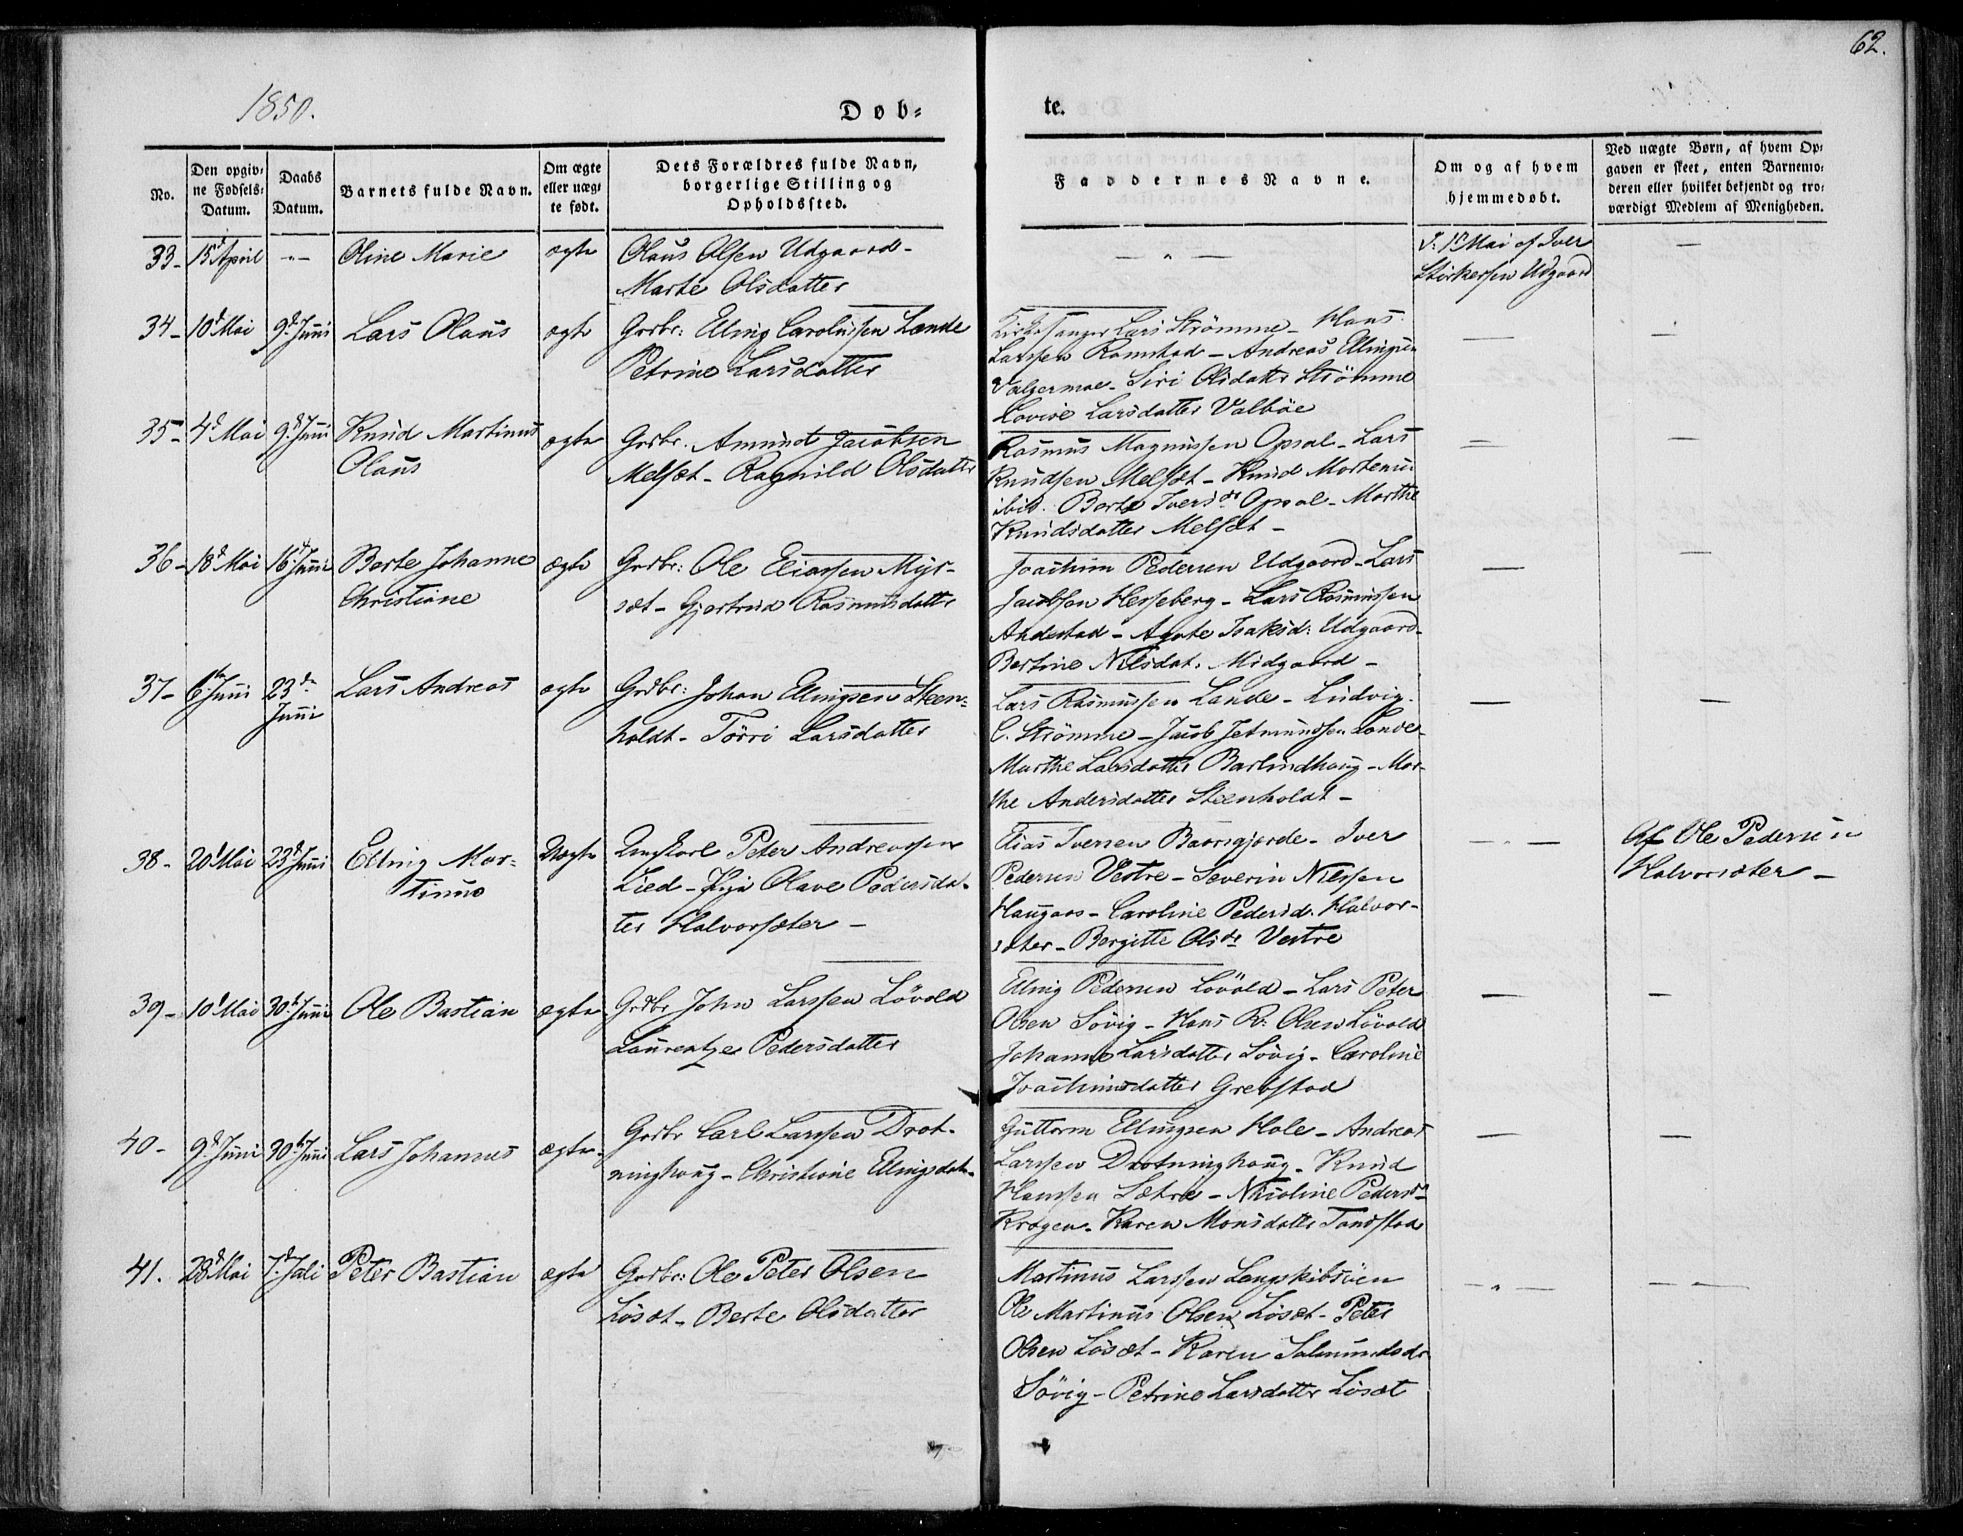 62.
1850.
Døb-
te.
No.
Den opgiv-
ne Fødsels-
Datum.
Daabs
Datum.
Barnets fulde Navn.
Om ægte
eller uæg-
te født.
Dets Forældres fulde Navn,
borgerlige Stilling og
Opholdssted.
Faddernes Navne.
Om og af hvem
hjemmedøbt.
Ved uægte Børn, af hvem Op-
gaven er skeet, enten Barnemo-
deren eller hvilket bekjendt og tro-
værdigt Medlem af Menigheden.
33- 15 April -"- Oline Marie ægte
Olaus Olsen Udgaard-
Marte Olsdatter
- " -
1 Mai af Iver
Udgaard
—
34- 10 Mai 9 Juni Lars Olaus ægte
Grdbr: Elling Carolussen Lande
Petrine Larsdatter
Kirkesanger Lars Strømme- Hans
Larssen Ramstad- Andreas Ellingsen
Siri Olsdatter Strømme
Lovise Larsdatter Valbøe
—
35- 4 Mai 9 Juni Knud Martinus
Olaus
ægte
Grdbr. Amund Jacobsen
Melsæt- Ragnild Olsdatter
Rasmus Magnussen Opsal- Lars
Knudsen Melsæt- Knud
ibid. Berte Iversdr Opsal- Marthe
Knudsdatter Melsæt-
—
36- 18 Mai 16 Juni Berte Johanne
Christiane
ægte
Grdbr: Ole Eliassen Myr-
sæt- Gjertrud Rasmusdatter
Joachim Pedersen Udgaard- Lars
Jacobsen Hesseberg- Lars Rasmussen
Andestad- Agate Isaksd: Udgaard-
Bertine Nilsdat. Midgaard-
—
37- 6 Juni 23de
Juni
Lars Andreas ægte
Grdbr: Johan Ellingsen Steen-
holdt- Tørri Larsdatter
Lars Rasmussen Lande- Ludvig
C. Strømme- Jacob Jetmundsen Lande-
Marthe Larsdatter Barlindhaug- Mar-
the Andersdatter Steenholdt-
—
38- 20 Mai 23 Juni Elling Mar-
tinus
Uægte
Ungkarl Peter Andreassen
Lied- Pige Olave Pedersdat-
ter Halvorsæter-
Elias Iversen Baarsgjerde- Iver
Pedersen Vestre- Severin Nilssen
Haugaas- Caroline Pedersd. Halvor-
sæter- Bergitte Olsdr Vestre
- " -
Af Ole Pedersen
Halvorsæter-
39- 10 Mai 30 Juni Ole Bastian ægte
Grdbr John Larssen Løvold
Laurentze Pedersdatter
Elling Pedersen Løvold- Lars Peter
Olsen Søvig- Hans R: Olsen Løvold
Johanne Larsdatter Søvig- Caroline
Joachimsdatter Grebstad
—
40- 9 Juni 30 Juni Lars Johannes ægte
Grdbr Carl Larssen Drot-
ninghoug- Christine Ellingsdatr
Guttorm Ellingsen Hole- Andreas
Larssen Drotninghoug- Knud
Hanssen Sætre- Nicoline Pedersdr
Krogen- Karen Monsdatter Tandstad
—
41. 28 Mai 7 Juli Peter Bastian ægte
Grdbr: Ole Peter Olsen
Løsæt- Berte Olsdatter
Martinus Larssen Langskibsøen
Ole Martinus Olsen Løsæt- Peter
Olsen Løsæt- Karen Salmundsdr
Søvig- Petrine Larsdatter Løsæt
- " -